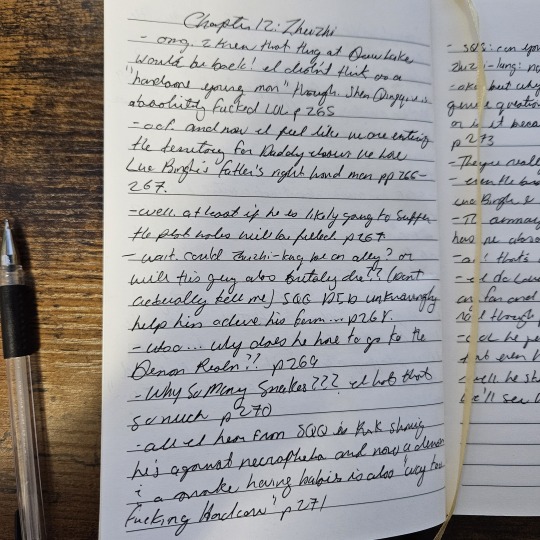 Chapter 12: Zhuzhi
- omg. I knew that thing at Dew Lake
would be back! I didn't think as a
"handsome young man" though. Shen Qingqiu is
absolutely fucked LOL p265
- and now I feel like we are entering
the territory for Daddy issues we have
Luo Binghe's father's right hand man pp 266-
267.
- well at least if he is likely going to suffer
the plot holes will be filled p267
- wait. could Zhuzhi-lang be an ally? or
will this guy also brutally die?? (Don't
actually tell me) SQQ DID unknowingly
help him achieve his form... p268
- also... why does he have to go to the
Demon Realm?? p269
- Why So Many Snakes??? I hate that
so much p270
- all I hear from SQQ is kink shaming
he's against necrophelia and now a demon
& a snake having babies is also "way too
fucking Hardcore" p271
- SQQ: can you
Zhuzhi-lang: no
- but why
question
or is it beca
p273
- They're really
Luo Binghe &
has no
- and that's
far and
though
- he
even
- well he sh
we'll see